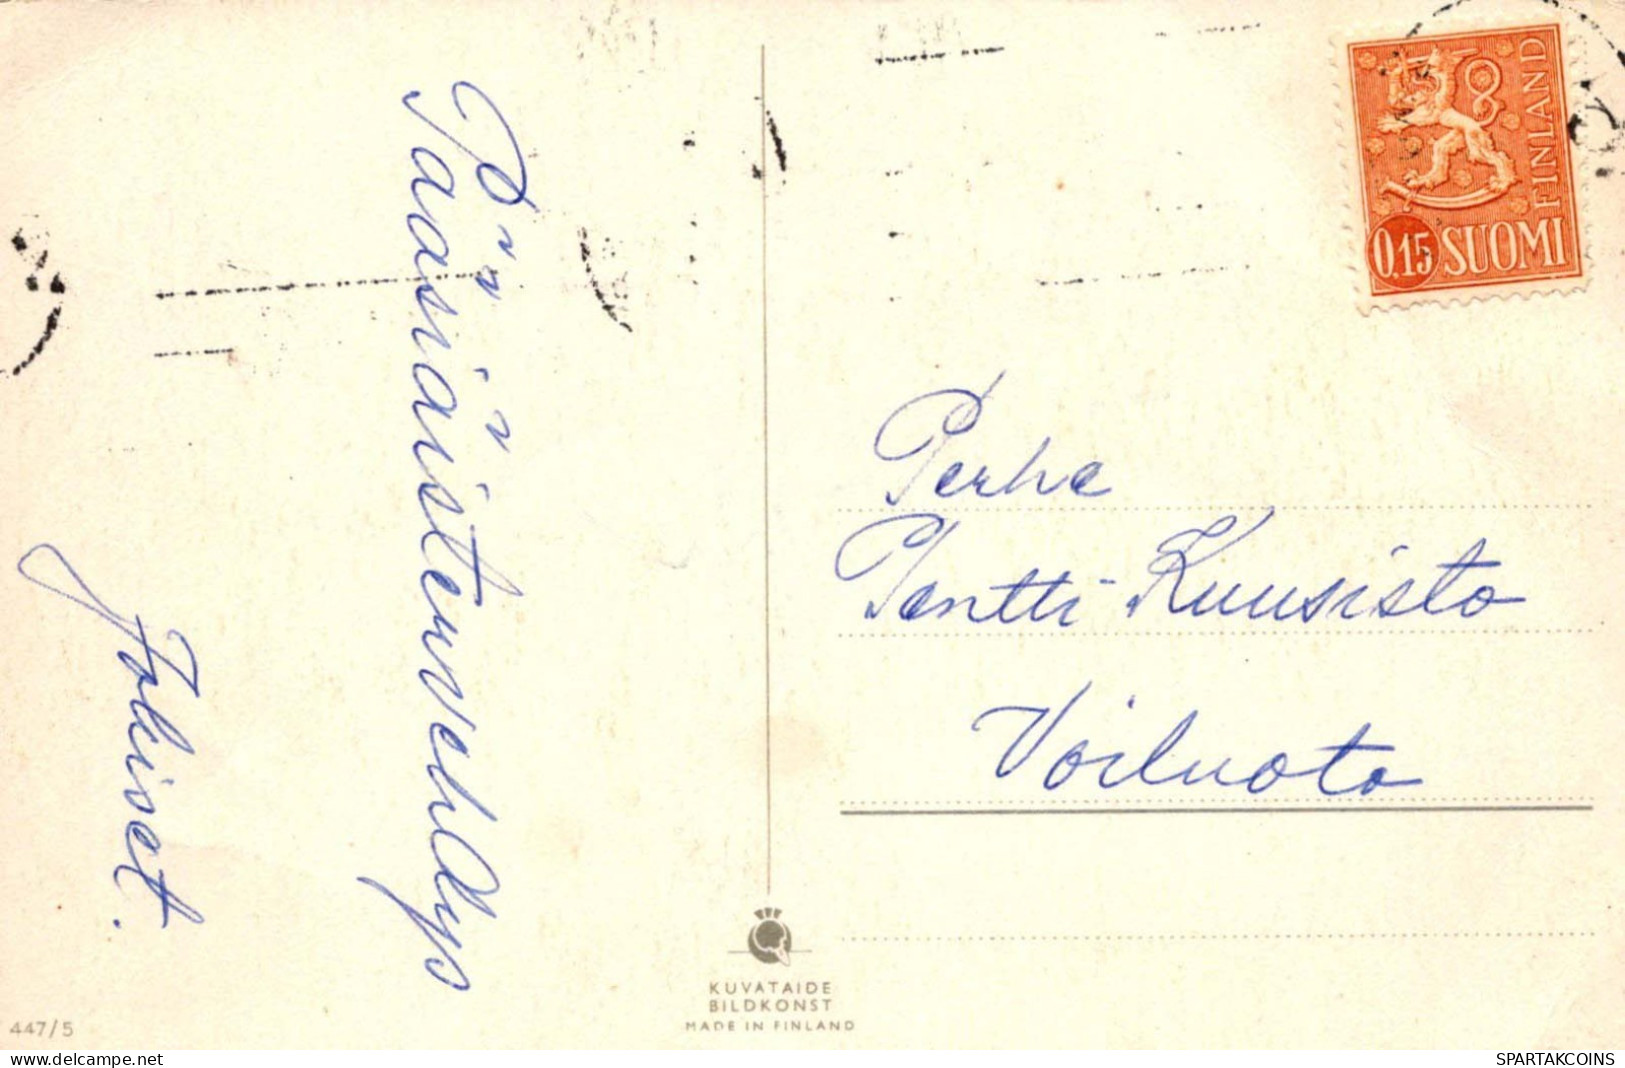 Pääsiäistervehdys
Jokiset.
FINLAND
0,15 SUOMI
Perhe
Pentti Kuusisto
Voiluoto
KUVATAIDE
BILDKONST
MADE IN FINLAND
447/5
www.delcampe.net
SPARTAKCOINS